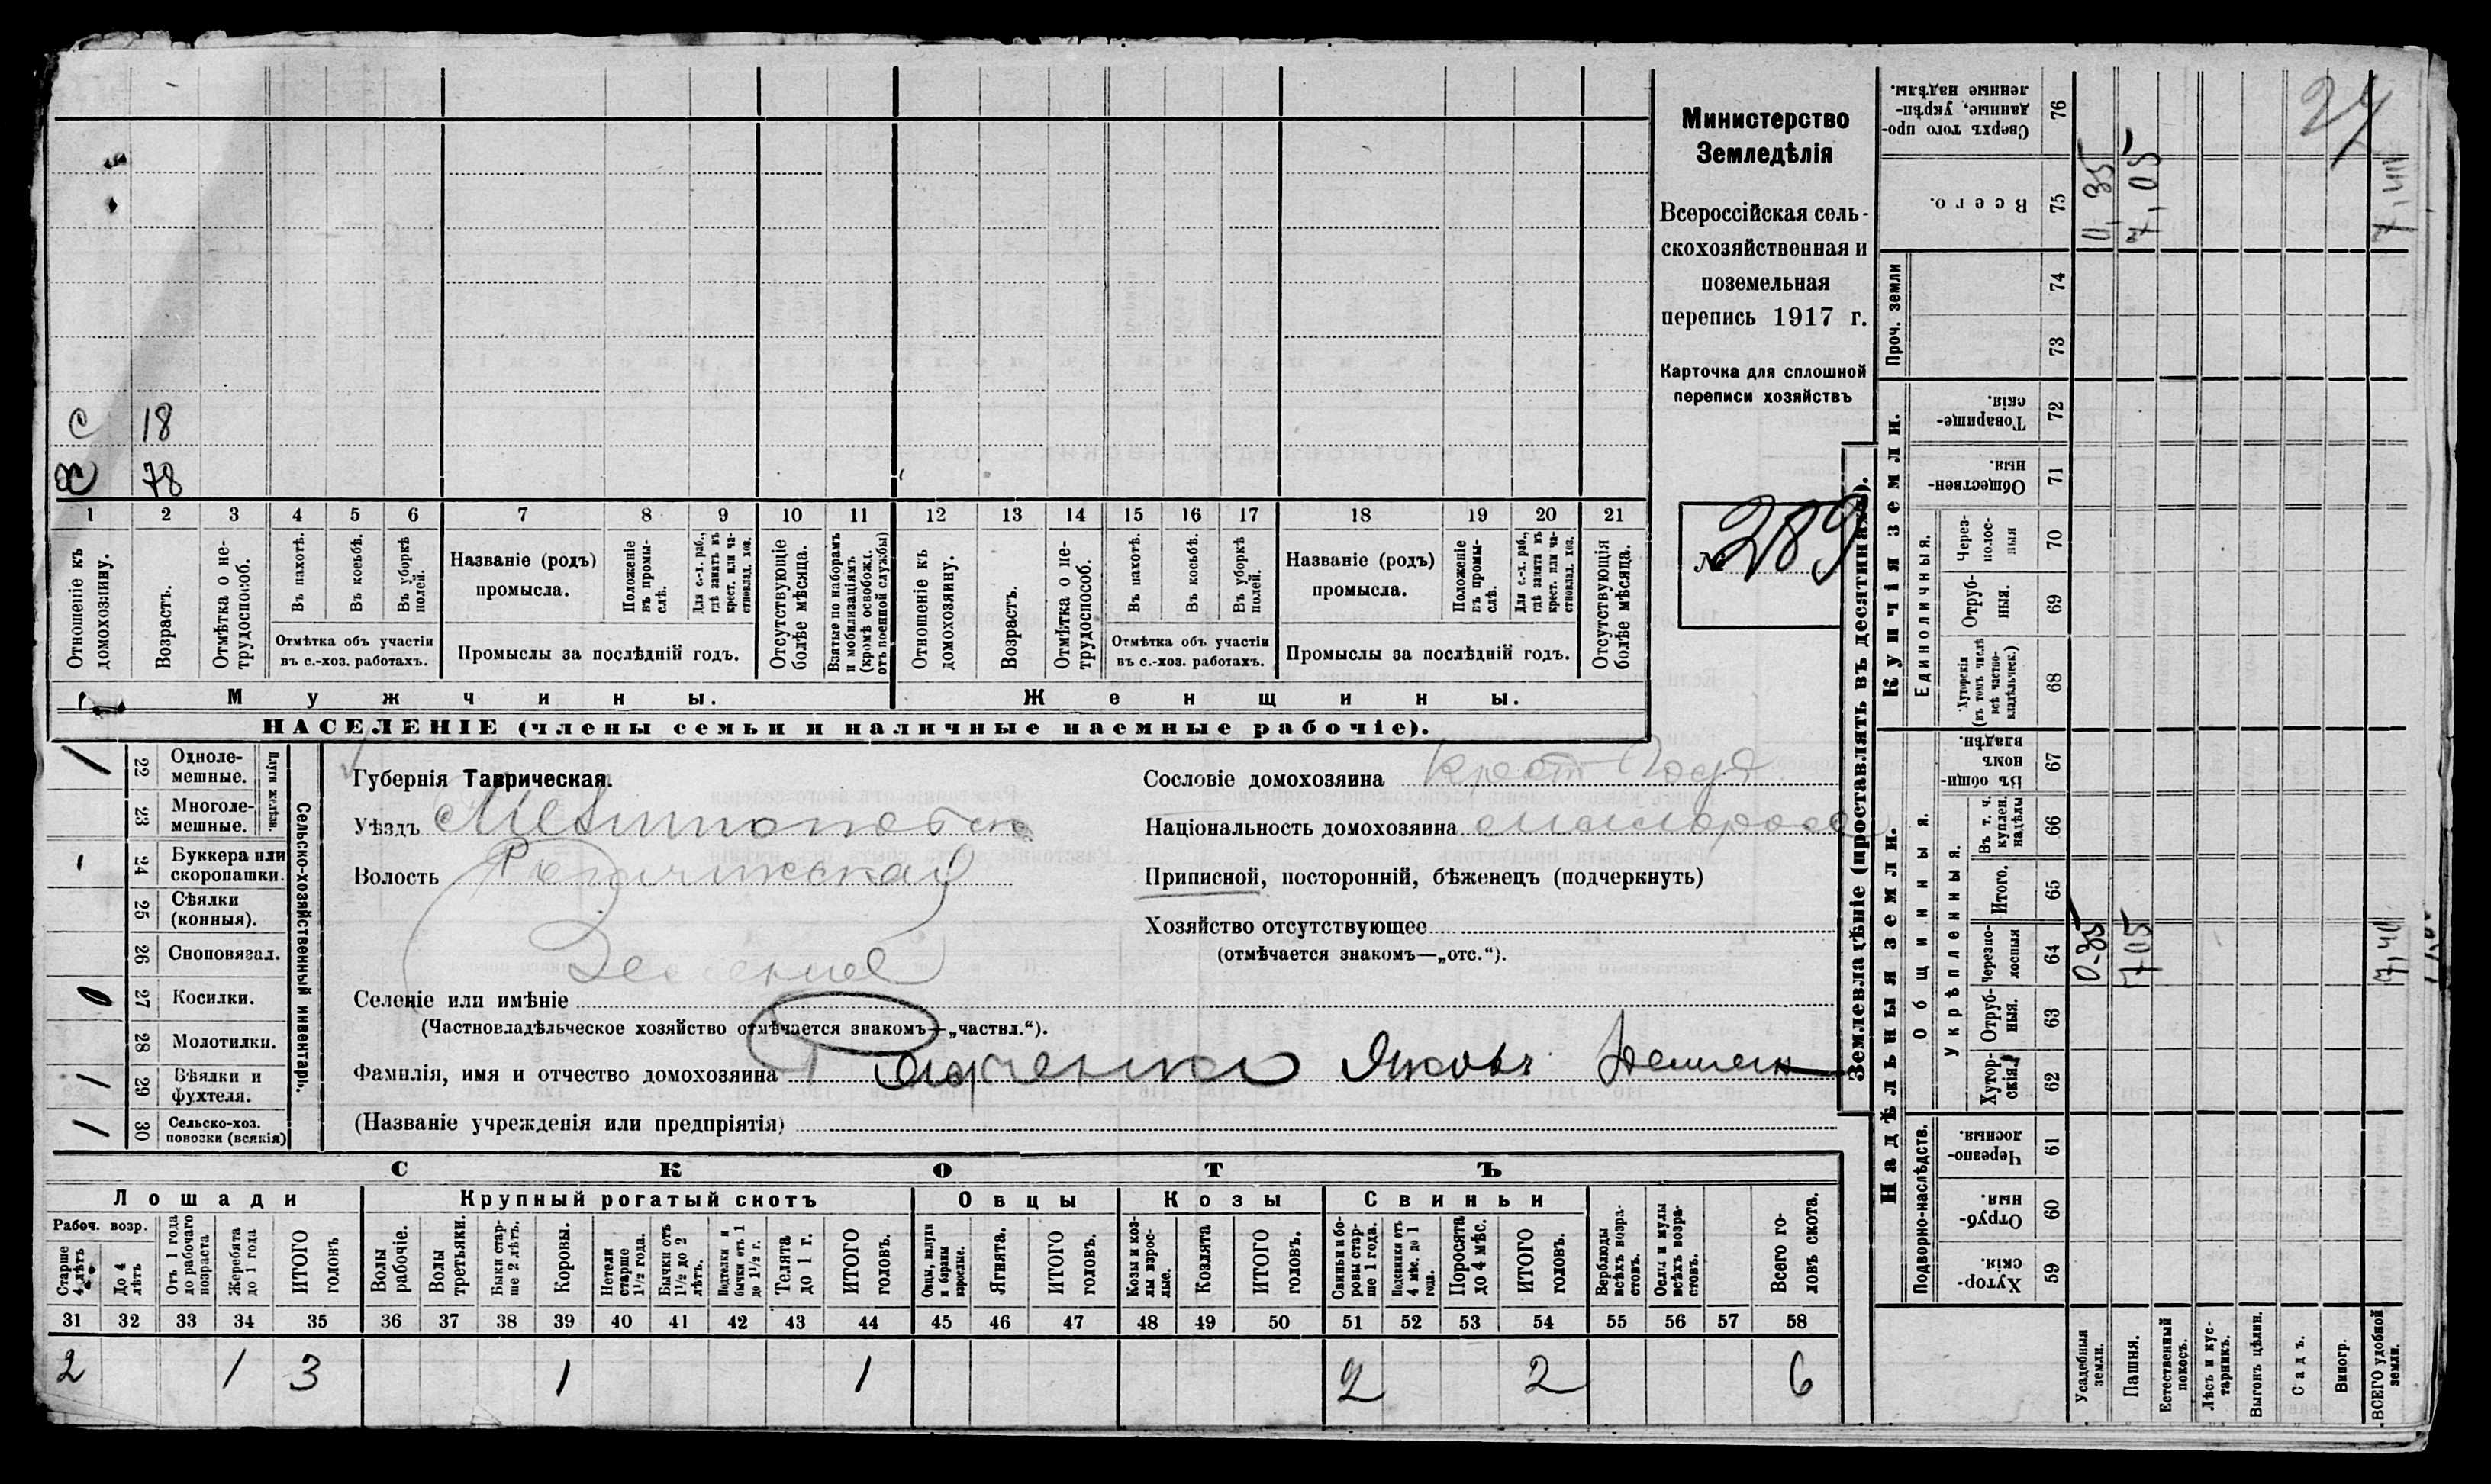 с 18
х 78
1 2 3 4 5 6 7 8 9 10 11 12 13 14 15 16 17 18 19 20 21
Отношеніе къ домохозяину.
Возрастъ.
Отмѣтка о не-трудоспособ.
Въ пахотѣ.
Въ косьбѣ.
Въ уборкѣ полей.
Отмѣтка объ участіи
въ с.-хоз. работахъ.
Названіе (родъ)
промысла.
Положеніе въ промы-слѣ.
Для с.-х. раб., гдѣ занятъ въ крест. или ча-стновлад. хоз.
Промыслы за послѣдній годъ.
Отсутствующіе болѣе мѣсяца.
Взятые по наборамъ и мобилизаціямъ (кромѣ освобожд. отъ военной службы)
Отношеніе къ домохозяину.
Возрастъ.
Отмѣтка о не-трудоспособ.
Въ пахотѣ.
Въ косьбѣ.
Въ уборкѣ полей.
Отмѣтка объ участіи
въ с.-хоз. работахъ.
Названіе (родъ)
промысла.
Положеніе въ промы-слѣ.
Для с.-х. раб., гдѣ занятъ въ крест. или ча-стновлад. хоз.
Промыслы за послѣдній годъ.
Отсутствующія болѣе мѣсяца.
Мужчины.
Женщины.
НАСЕЛЕНІЕ (члены семьи и наличные наемные рабочіе).
Министерство
Земледѣлія
Всероссійская сель-
скохозяйственная и
поземельная
перепись 1917 г.
Карточка для сплошной
переписи хозяйствъ
№ 289
1 22 Одноле-мешные.
23 Многоле-мешные.
Плуги желѣзн.
24 Буккера или скоропашки.
25 Сѣялки (конныя).
26 Сноповязал.
27 Косилки.
28 Молотилки.
1 29 Вѣялки и фухтеля.
1 30 Сельско-хоз. повозки (всякія)
Сельско-хозяйственный инвентарь.
Губернія Таврическая.
Уѣздъ Мелитопольск
Волость
Селеніе или имѣніе
(Частновладѣльческое хозяйство отмѣчается знакомъ—„частвл.“).
Фамилія, имя и отчество домохозяина Яковъ
(Названіе учрежденія или предпріятія)
Сословіе домохозяина крест
Національность домохозяина малоросс
Приписной, посторонній, бѣженецъ (подчеркнуть)
Хозяйство отсутствующее
(отмѣчается знакомъ—„отс.“).
СКОТЪ
Лошади Крупный рогатый скотъ Овцы Козы Свиньи
Рабоч. возр.
Старше 4 лѣтъ
До 4 лѣтъ
Отъ 1 года до рабочаго возраста
Жеребята до 1 года
ИТОГО головъ
Волы рабочіе.
Волы третьяки.
Быки стар-ше 2 лѣтъ.
Коровы.
Нетели старше 1½ года.
Бычки отъ 1½ до 2 лѣтъ.
Подтелки и бычки отъ 1 до 1½ г.
Телята до 1 г.
ИТОГО головъ.
Овцы, валухи и бараны взрослые.
Ягнята.
ИТОГО головъ.
Козы и коз-лы взрос-лые.
Козлята
ИТОГО головъ.
Свиньи и бо-ровы стар-ше 1 года.
Подсвинки отъ 4 мѣс. до 1 года.
Поросята до 4 мѣс.
ИТОГО головъ.
Верблюды всѣхъ возра-стовъ.
Ослы и мулы всѣхъ возра-стовъ.
Всего го-ловъ скота.
31 32 33 34 35 36 37 38 39 40 41 42 43 44 45 46 47 48 49 50 51 52 53 54 55 56 57 58
2 1 3 1 1 2 2 6
Землевладѣніе (проставлять въ десятинахъ).
Надѣльныя земли.
Купчія земли.
Проч. земли
Подворно-наслѣдств.
Общинныя.
Укрѣпленныя.
Единоличныя.
Сверхъ того про-данные, укрѣп-ленные надѣлы. 76
Всего. 75 0,35 7,05
74
73
Товарище-скія. 72
Обществен-ныя. 71
Через-полос-ныя 70
Отруб-ныя. 69
Хуторскія (въ томъ числѣ всѣ частно-владѣльческ.) 68
Въ общин-номъ владѣн. 67
Въ т. ч. куплен. надѣлы 66
Итого. 65
Черезпо-лосныя 64 0.35 7.05 7,40
Отруб-ныя. 63
Хутор-скія 62
Черезпо-лосныя. 61
Отруб-ныя. 60
Хутор-скія. 59
Усадебныя земли.
Пашня.
Естественный покосъ.
Лѣсъ и кус-тарникъ.
Выгонъ цѣлин.
Садъ.
Виногр.
ВСЕГО удобной земли.